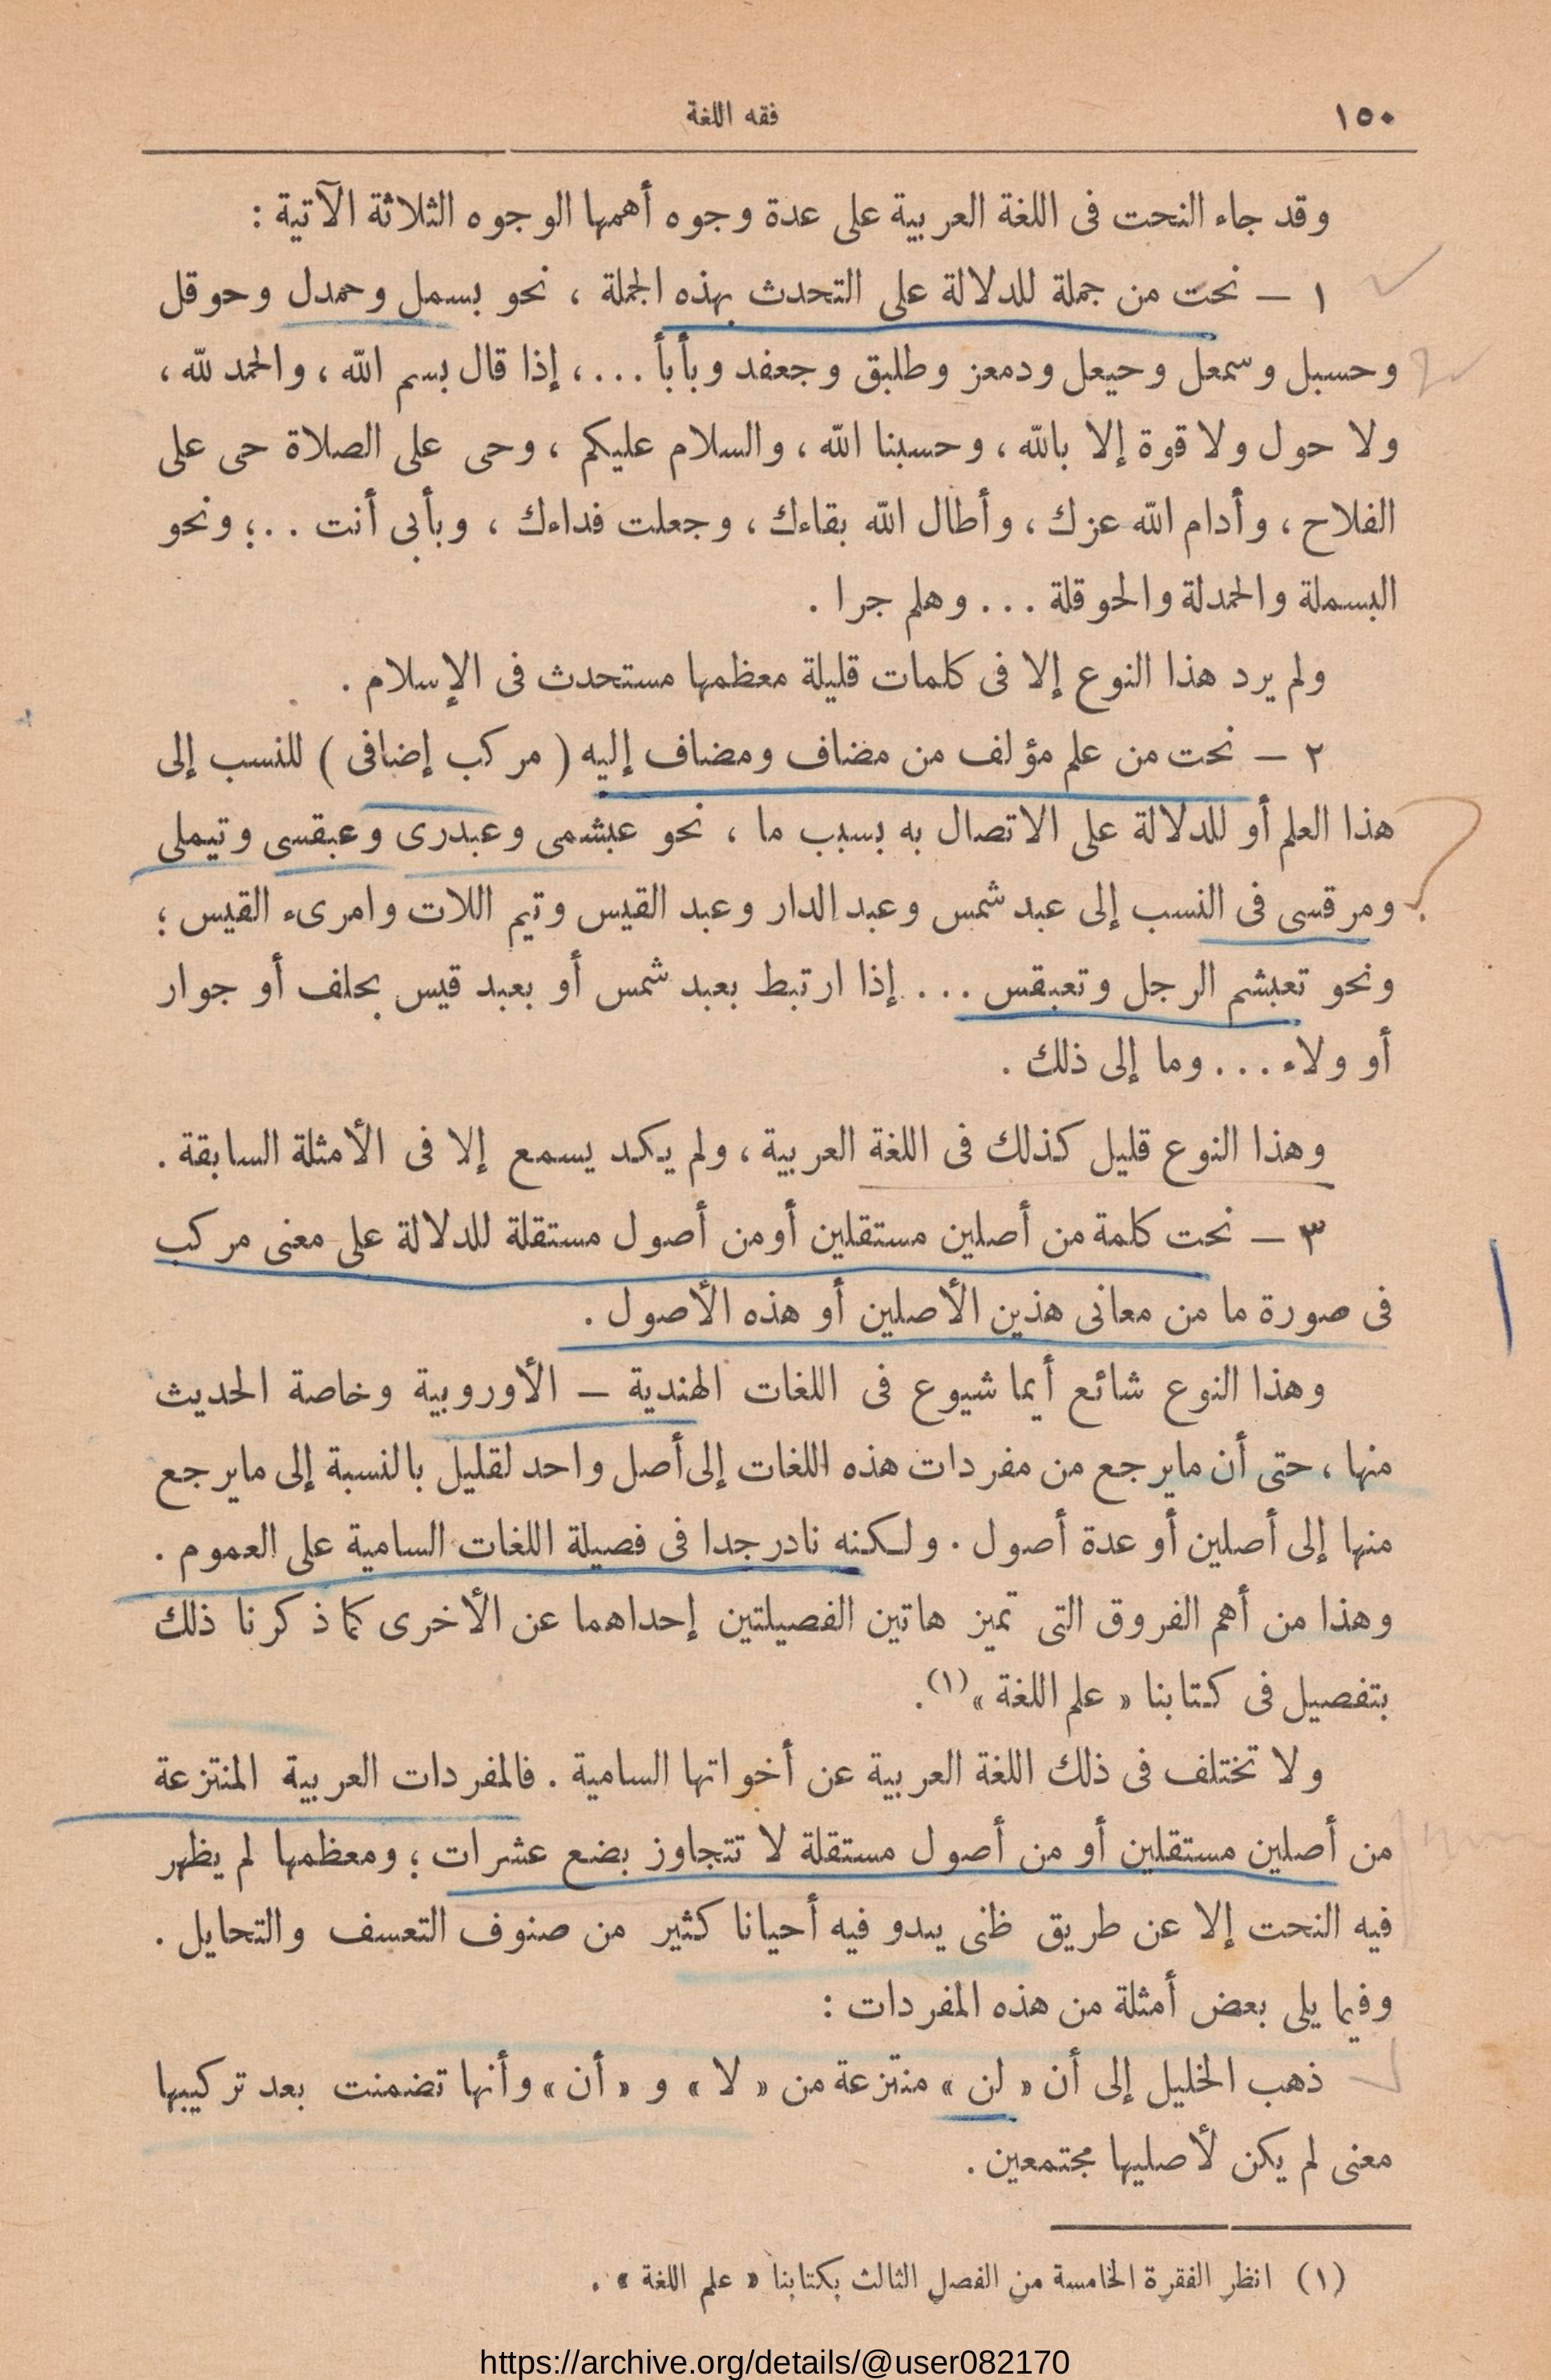 ١٥٠
فقه اللغة
وقد جاء النحت فى اللغة العربية على عدة وجوه أهمها الوجوه الثلاثة الآتية :
١ — نحت من جملة للدلالة على التحدث بهذه الجملة ، نحو بسمل وحمدل وحوقل
وحسبل وسمعل وحيعل ودمعز وطلبق وجعفد وبأبأ ... ، إذا قال بسم الله ، والحمد لله ،
ولا حول ولا قوة إلا بالله ، وحسبنا الله ، والسلام عليكم ، وحى على الصلاة حى على
الفلاح ، وأدام الله عزك ، وأطال الله بقاءك ، وجعلت فداءك ، وبأبى أنت ..؛ ونحو
البسملة والحمدلة والحوقلة ... وهلم جرا .
ولم يرد هذا النوع إلا فى كلمات قليلة معظمها مستحدث فى الإسلام .
٢ — نحت من علم مؤلف من مضاف ومضاف إليه ( مركب إضافى ) للنسب إلى
هذا العلم أو للدلالة على الاتصال به بسبب ما ، نحو عبشمى وعبدرى وعبقسى وتيملى
ومرقسى فى النسب إلى عبد شمس وعبد الدار وعبد القيس وتيم اللات وامرىء القيس ؛
ونحو تعبشم الرجل وتعبقس ... إذا ارتبط بعبد شمس أو بعبد قيس بحلف أو جوار
أو ولاء ... وما إلى ذلك .
وهذا النوع قليل كذلك فى اللغة العربية ، ولم يكد يسمع إلا فى الأمثلة السابقة .
٣ — نحت كلمة من أصلين مستقلين أو من أصول مستقلة للدلالة على معنى مركب
فى صورة ما من معانى هذين الأصلين أو هذه الأصول .
وهذا النوع شائع أيما شيوع فى اللغات الهندية — الأوروبية وخاصة الحديث
منها ، حتى أن مايرجع من مفردات هذه اللغات إلى أصل واحد لقليل بالنسبة إلى مايرجع
منها إلى أصلين أو عدة أصول . ولكنه نادر جدا فى فصيلة اللغات السامية على العموم .
وهذا من أهم الفروق التى تميز هاتين الفصيلتين إحداهما عن الأخرى كما ذكرنا ذلك
بتفصيل فى كتابنا « علم اللغة »(١).
ولا تختلف فى ذلك اللغة العربية عن أخواتها السامية . فالمفردات العربية المنتزعة
من أصلين مستقلين أو من أصول مستقلة لا تتجاوز بضع عشرات ؛ ومعظمها لم يظهر
فيه النحت إلا عن طريق ظنى يبدو فيه أحيانا كثير من صنوف التعسف والتحايل .
وفيما يلى بعض أمثلة من هذه المفردات :
ذهب الخليل إلى أن « لن » منتزعة من « لا » و « أن » وأنها تضمنت بعد تركيبها
معنى لم يكن لأصليها مجتمعين .
(١) انظر الفقرة الخامسة من الفصل الثالث بكتابنا « علم اللغة » .
https://archive.org/details/@user082170